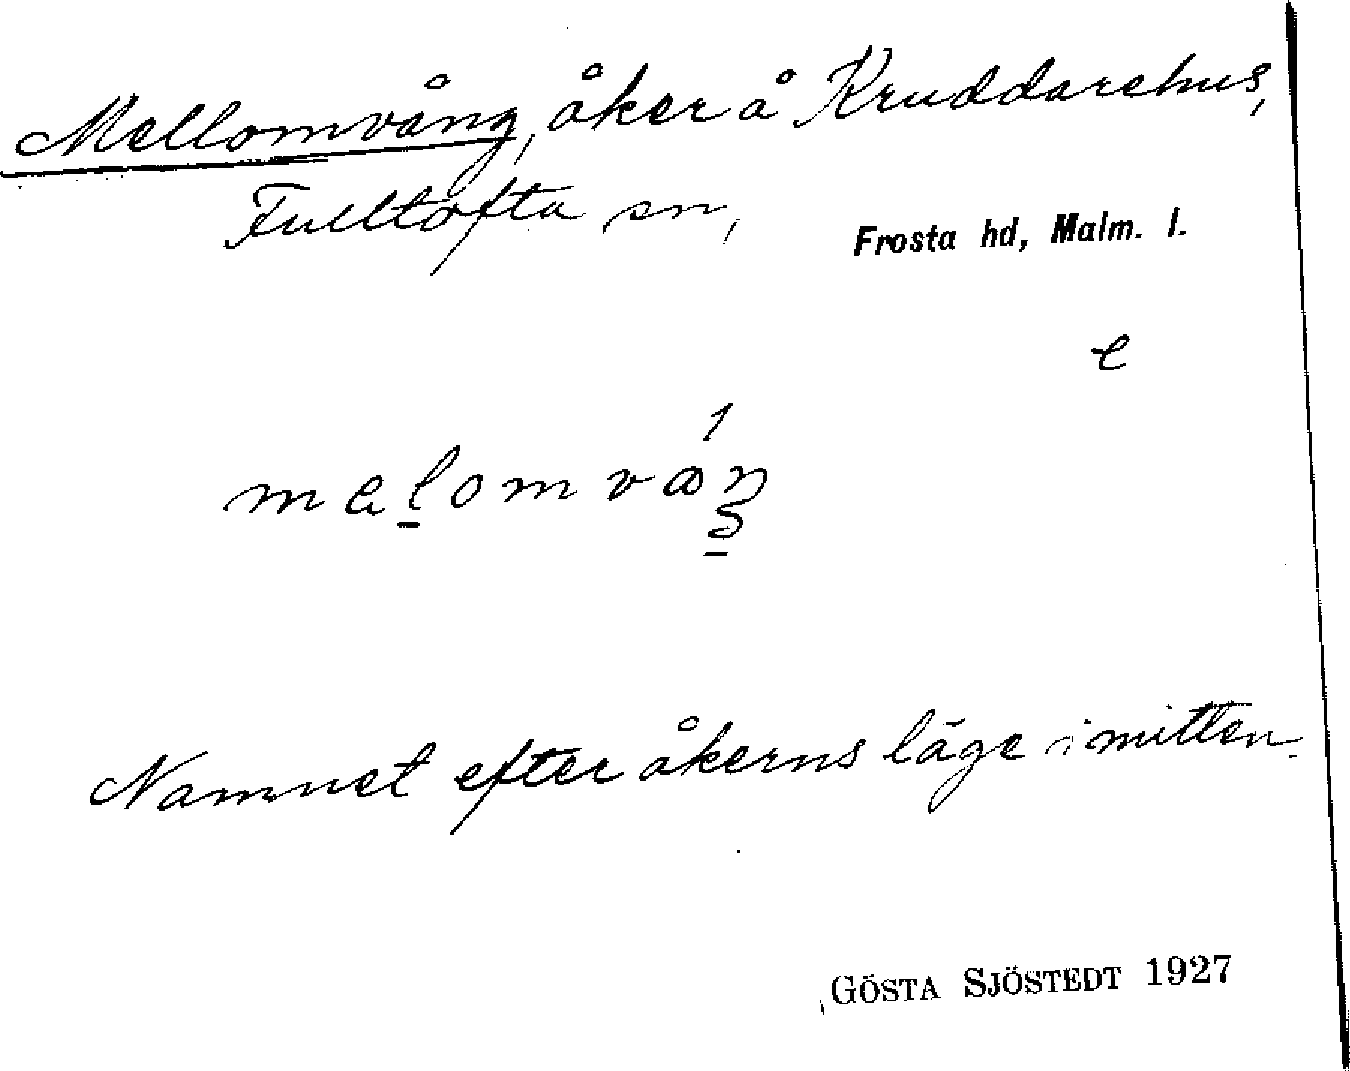 Mellomvång, åker å Kruddarehus,
Fulltofta sn,
Frosta hd, Malm. l.
e
Namnet efter åkerns läge i mitten.
GÖSTA SJÖSTEDT 1927